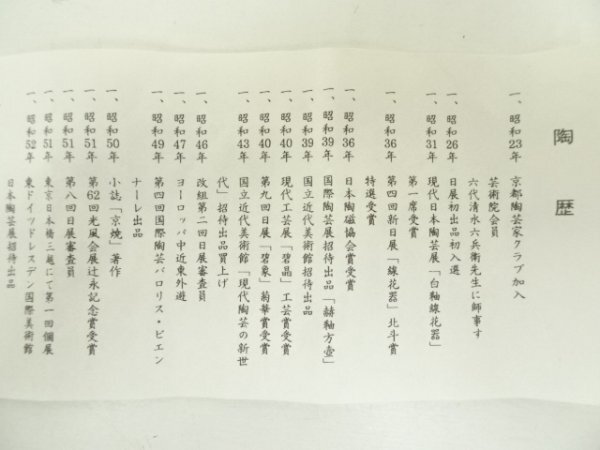 陶歴
一、昭和23年 京都陶芸家クラブ加入
芸術院会員
六代清水六兵衛先生に師事す
一、昭和26年 日展初出品初入選
一、昭和31年 現代日本陶芸展「白釉線花器」
第一席受賞
一、昭和36年 第四回新日展「線花器」北斗賞
特選受賞
一、昭和36年 日本陶磁協会賞受賞
一、昭和39年 国際陶芸展招待出品「赫釉方壺」
一、昭和39年 国立近代美術館招待出品
一、昭和40年 現代工芸展「碧晶」工芸賞受賞
一、昭和40年 第九回日展「碧象」菊華賞受賞
一、昭和43年 国立近代美術館「現代陶芸の新世
代」招待出品買上げ
一、昭和46年 改組第二回日展審査員
一、昭和47年 ヨーロッパ中近東外遊
一、昭和49年 第四回国際陶芸バロリス・ビエン
ナーレ出品
一、昭和50年 小誌「京焼」著作
一、昭和51年 第62回光風会展辻永記念賞受賞
一、昭和51年 第八回日展審査員
一、昭和51年 東京日本橋三越にて第一回個展
一、昭和52年 東ドイツドレスデン国際美術館
日本陶芸展招待出品